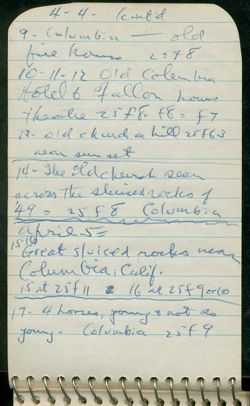 4-4- Cont'd
9- Columbia — old
fire house 25 f 8
10-11-12 Old Columbia
Hotel & Fallon house
Theatre 25 f 8. f 8 = f 7
13- old church on hill 25 f 6.3
near sunset
14- The Old church seen
across the sluiced rocks of
49 = 25 f 8 Columbia
April-5=
15-16
Great sluiced rocks near
Columbia, Calif.
15 at 25 f 11 & 16 at 25 f 9 or 10
17- 4 horses, young & not so
young- Columbia 25 f 9